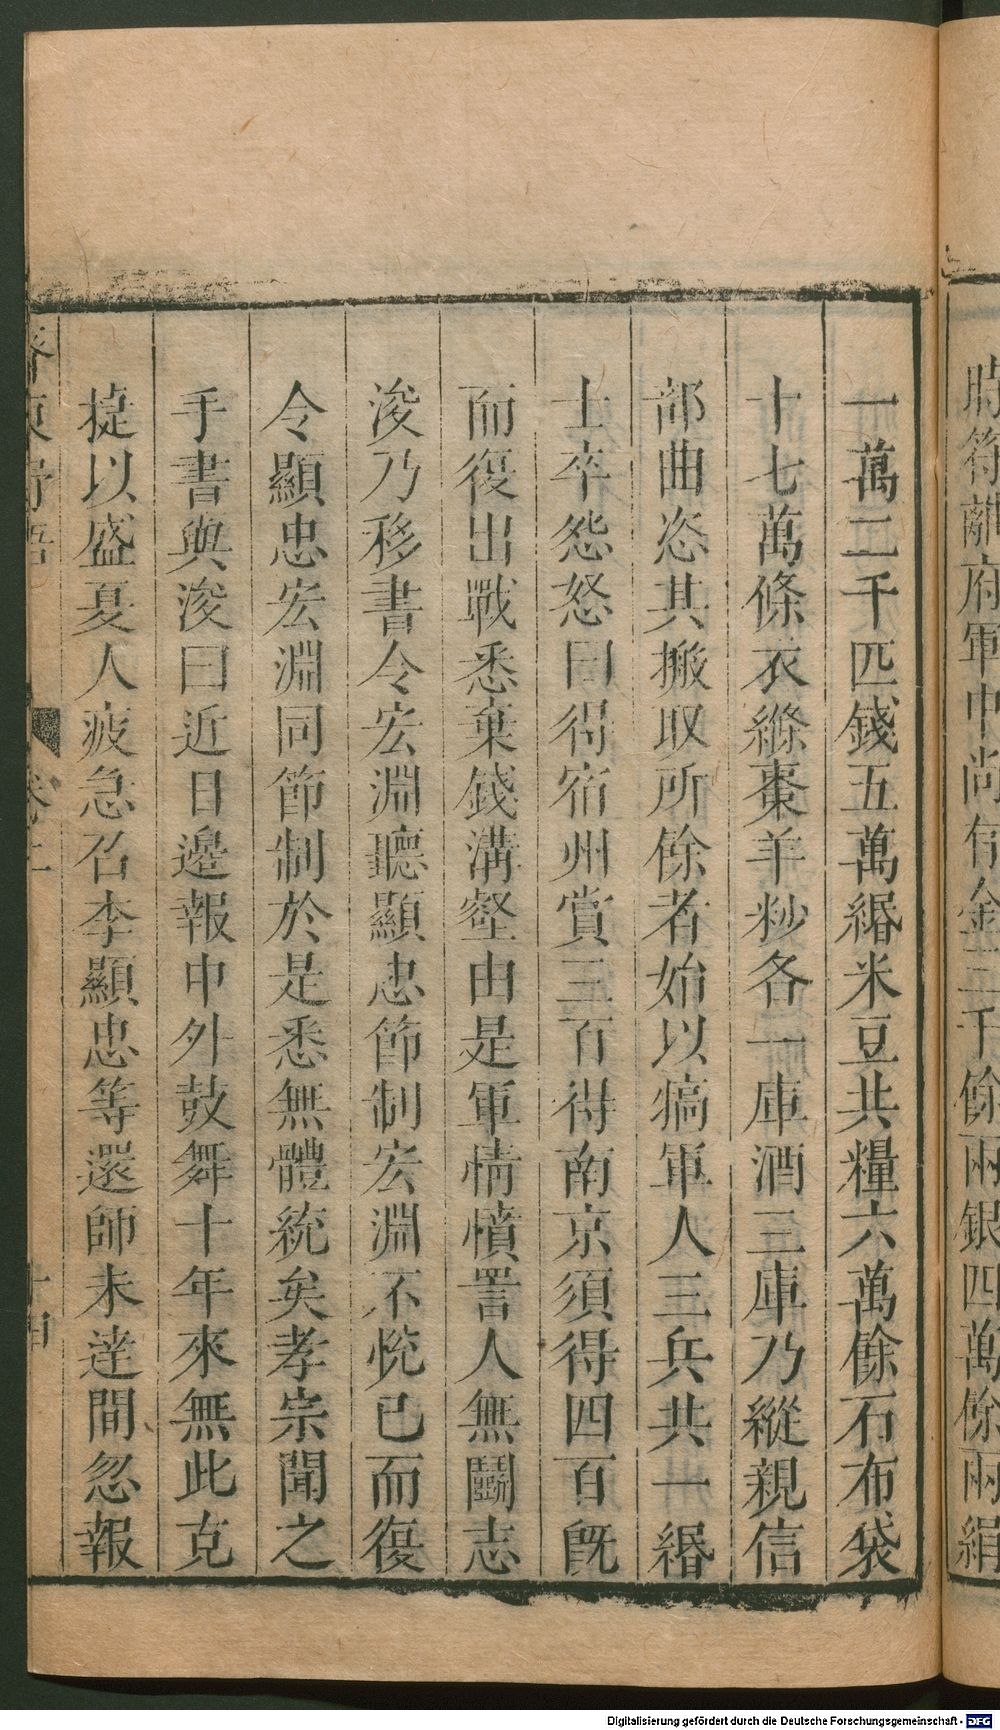 時符離府軍中尚有金三千餘兩銀四萬餘兩絹
一萬二千匹錢五萬緡米豆共糧六萬餘石布袋
十七萬條衣縧棗羊炒各一庫酒三庫乃縱親信
部曲恣其搬取所餘者始以犒軍人三兵共一緡
士卒怨怒曰得宿州賞三百得南京須得四百旣
而復出戰悉棄錢溝壑由是軍情憤詈人無鬬志
浚乃移書令宏淵聽顯忠節制宏淵不悅已而復
令顯忠宏淵同節制於是悉無體統矣孝宗聞之
手書與浚曰近日邊報中外鼓舞十年來無此克
捷以盛夏人疲急召李顯忠等還師未達間忽報
卷二
十四
Digitalisierung gefördert durch die Deutsche Forschungsgemeinschaft - DFG